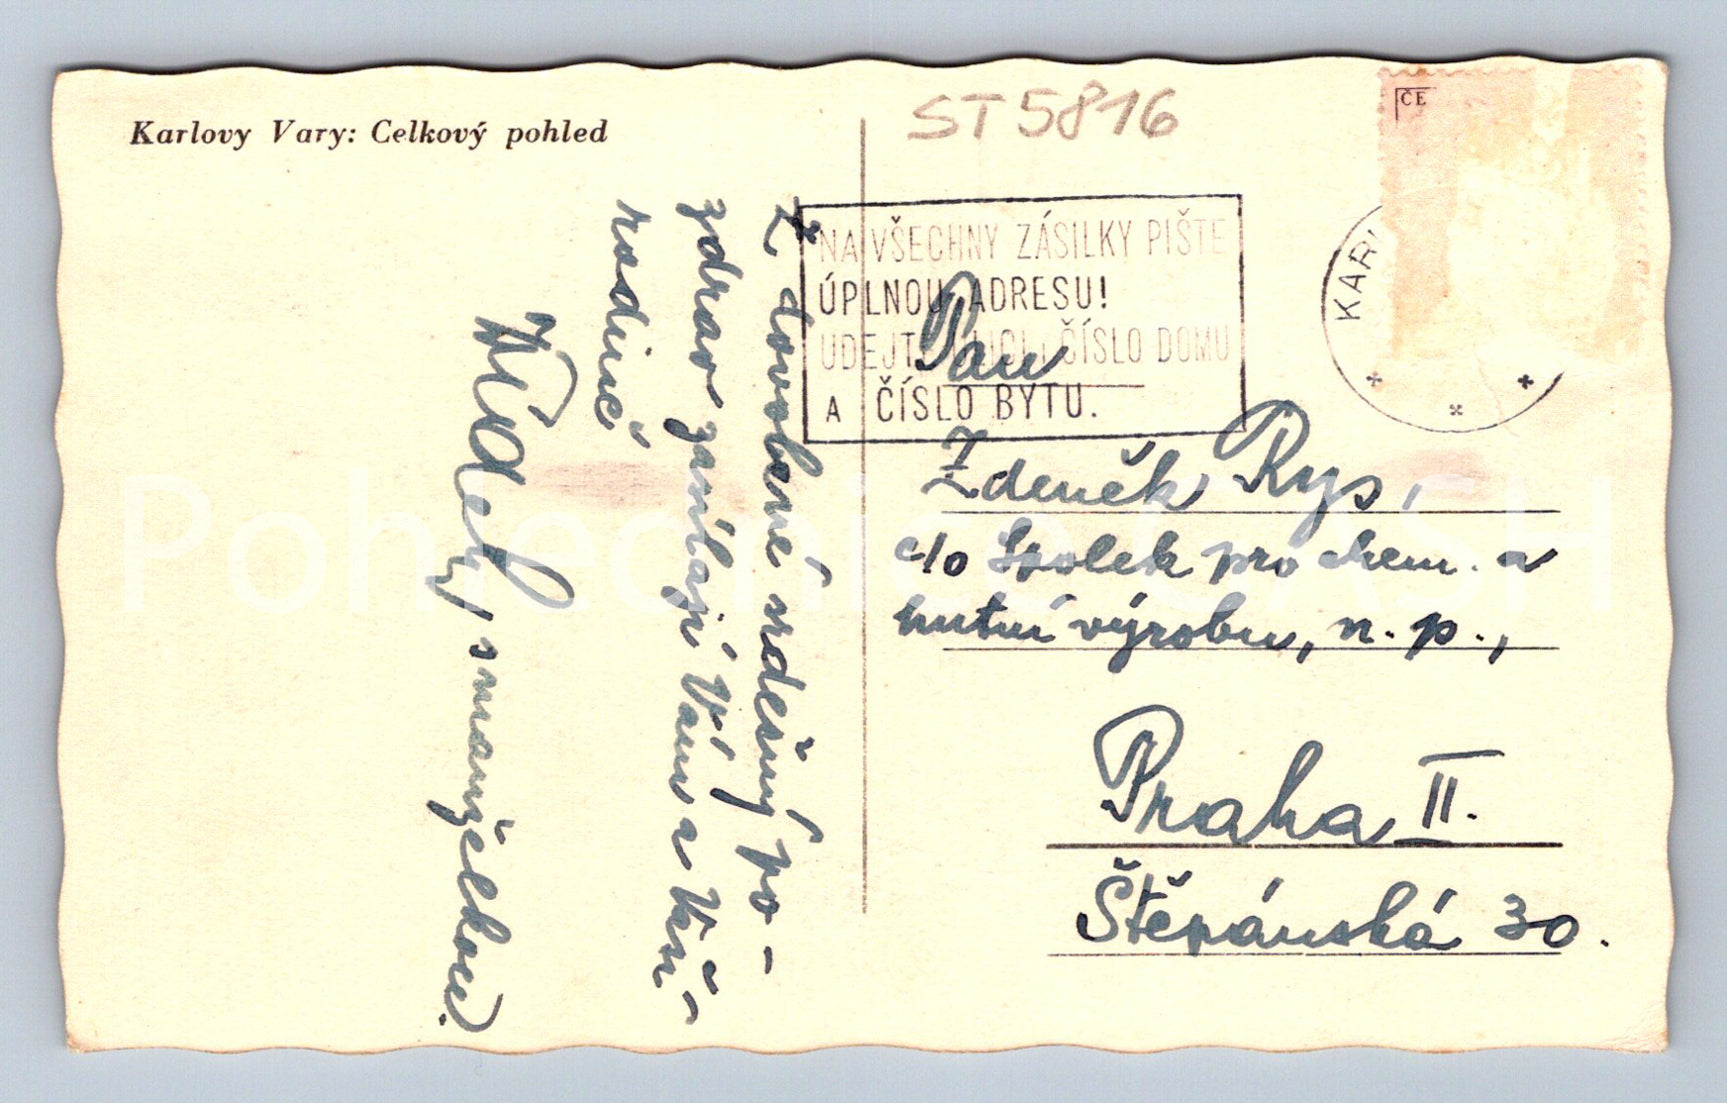 Karlovy Vary: Celkový pohled
ST 5816
ČE
KARL
NA VŠECHNY ZÁSILKY PIŠTE
ÚPLNOU ADRESU!
UDEJTE ULICI, ČÍSLO DOMU
A ČÍSLO BYTU.
Z dovolené srdečný po-
zdrav zasílají Vám a Vaší
rodině
s manželkou.
Pan
Zdeněk Rys,
c/o Spolek pro chem. a
hutní výrobu, n. p.,
Praha II.
Štěpánská 30.
Pohlednice SASH